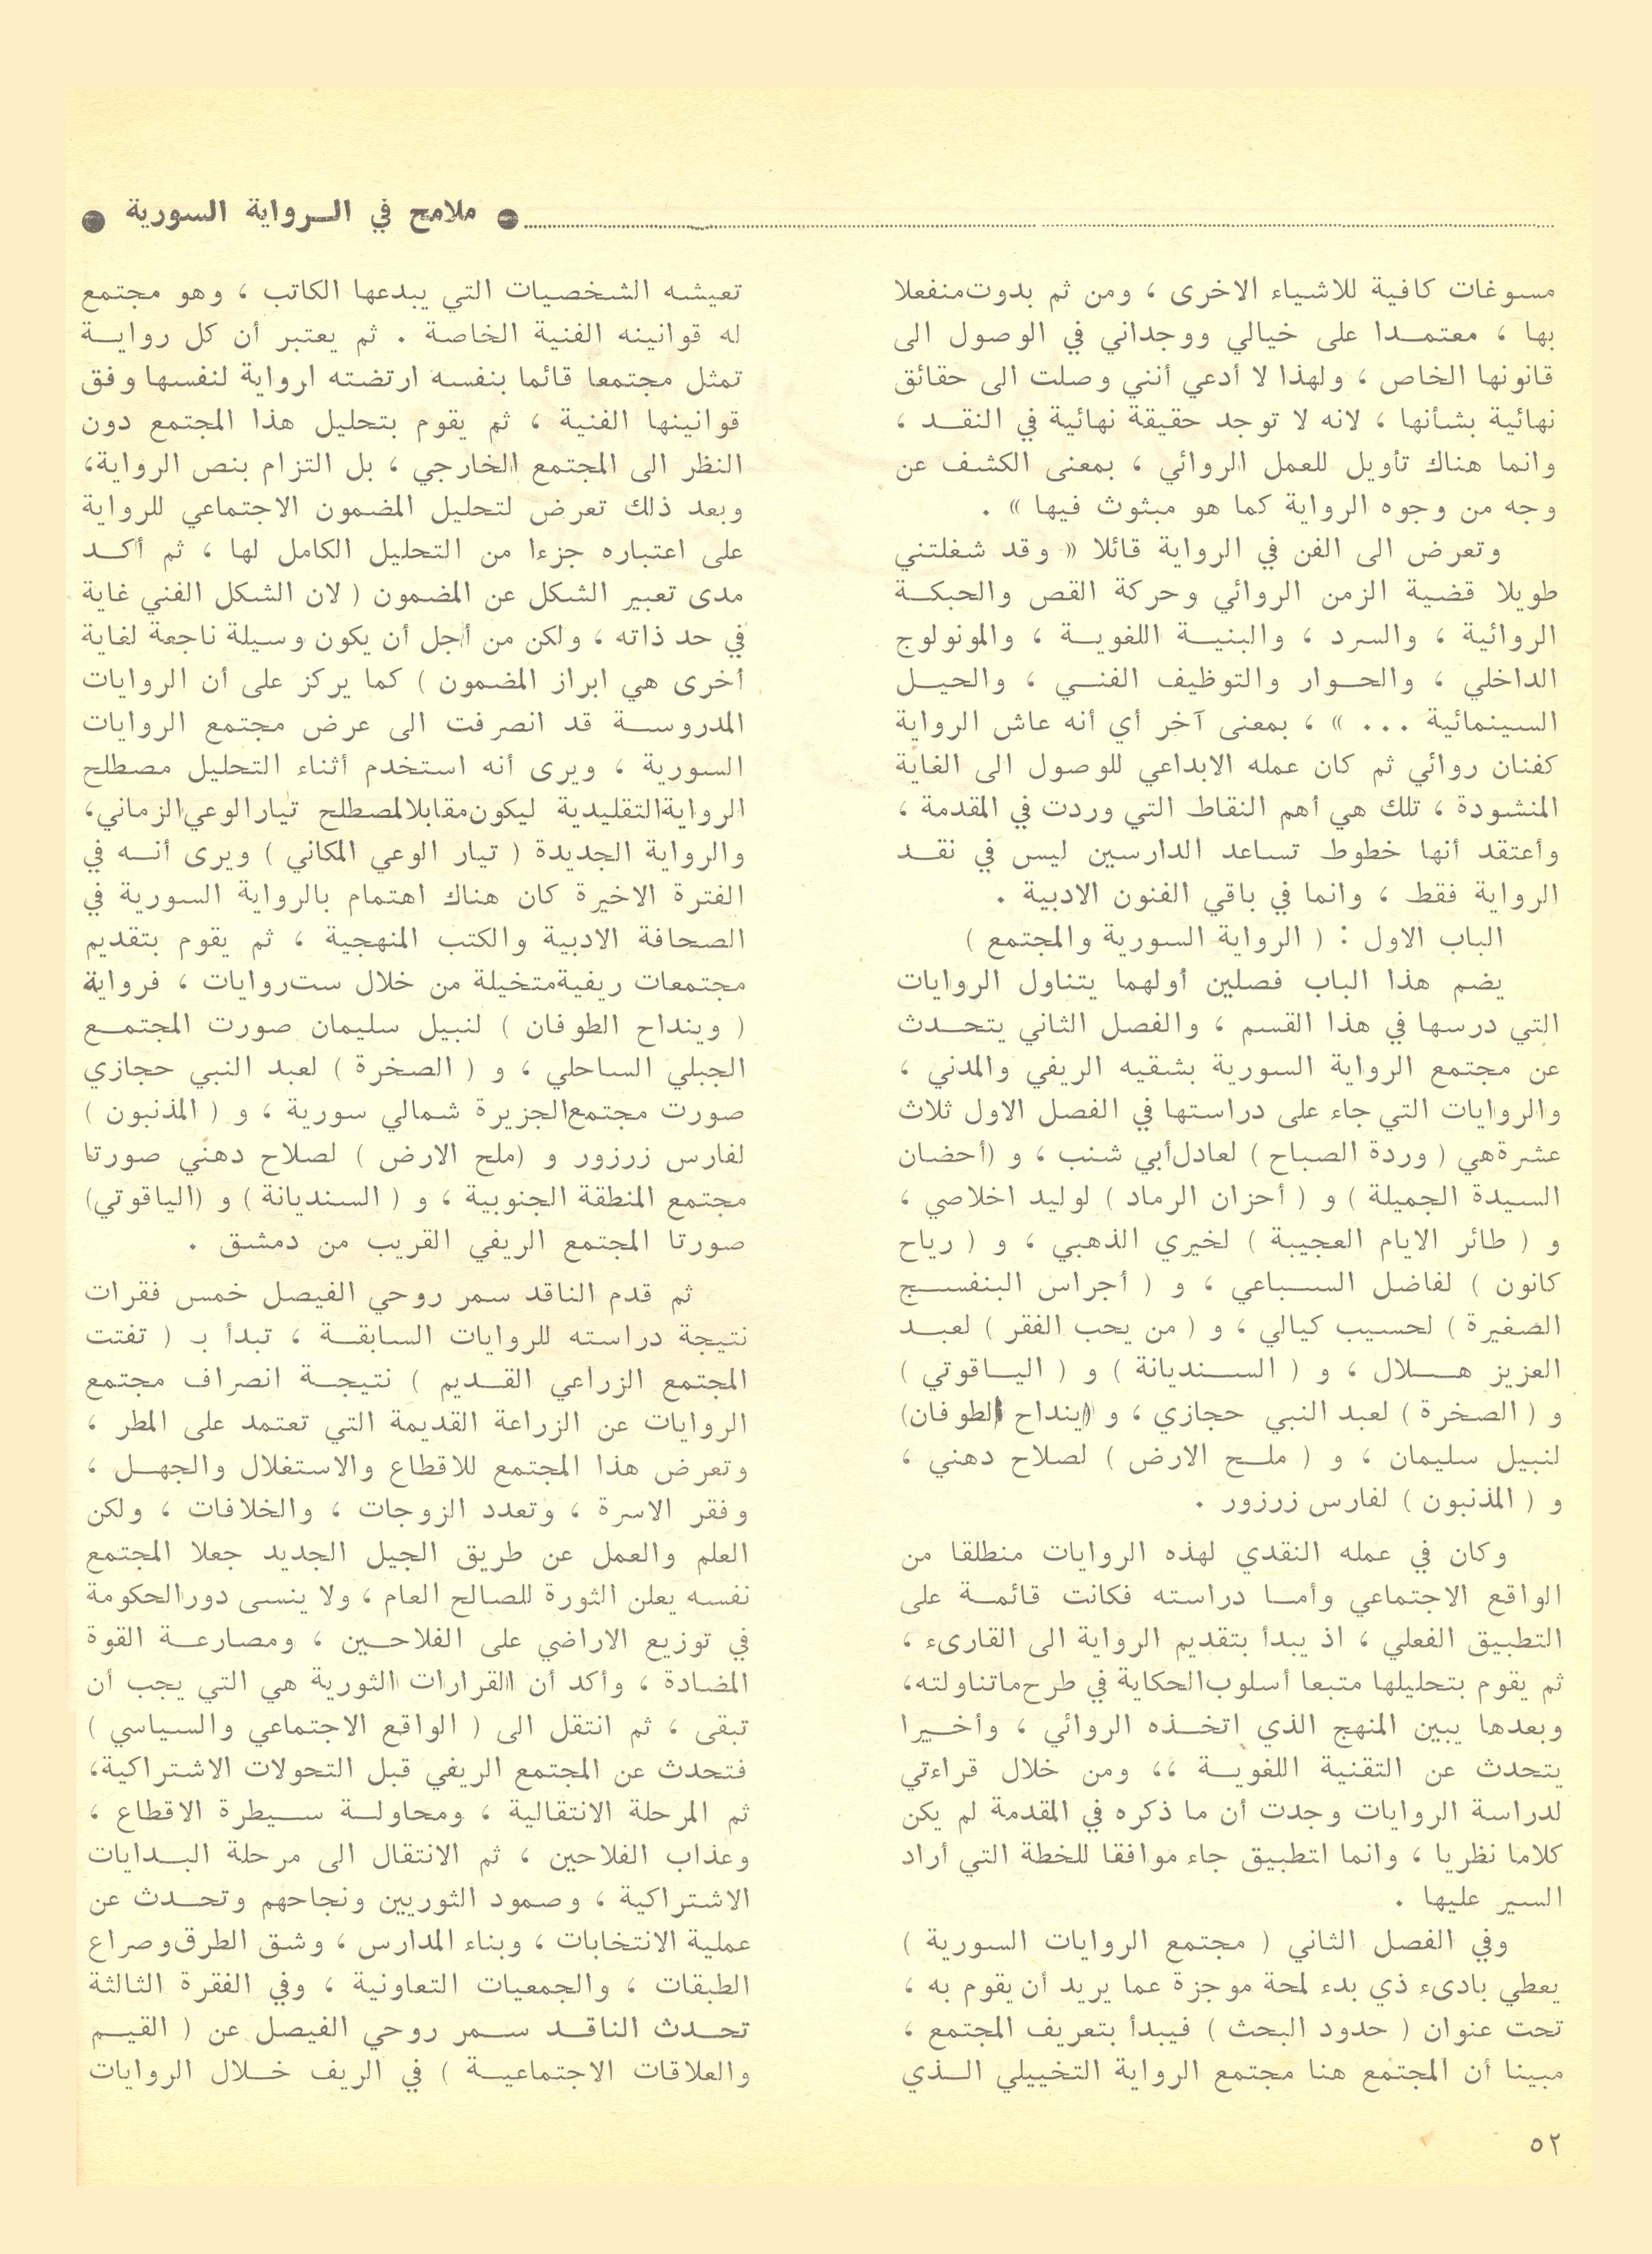 ● ملامح في الـرواية السورية ●
مسوغات كافية للاشياء الاخرى ، ومن ثم بدوت منفعلا
بها ، معتمــدا على خيالي ووجداني في الوصول الى
قانونها الخاص ، ولهذا لا أدعي أنني وصلت الى حقائق
نهائية بشأنها ، لانه لا توجد حقيقة نهائية في النقــد ،
وانما هناك تأويل للعمل الروائي ، بمعنى الكشف عن
وجه من وجوه الرواية كما هو مبثوث فيها » .
وتعرض الى الفن في الرواية قائلا « وقد شغلتني
طويلا قضية الزمن الروائي وحركة القص والحبكــة
الروائية ، والسرد ، والبنيــة اللغويــة ، والمونولوج
الداخلي ، والحــوار والتوظيف الفنــي ، والحيــل
السينمائية ... » ، بمعنى آخر أي أنه عاش الرواية
كفنان روائي ثم كان عمله الابداعي للوصول الى الغاية
المنشودة ، تلك هي أهم النقاط التي وردت في المقدمة ،
وأعتقد أنها خطوط تساعد الدارسين ليس في نقــد
الرواية فقط ، وانما في باقي الفنون الادبية .
الباب الاول : ( الرواية السورية والمجتمع )
يضم هذا الباب فصلين أولهما يتناول الروايات
التي درسها في هذا القسم ، والفصل الثاني يتحــدث
عن مجتمع الرواية السورية بشقيه الريفي والمدني ،
والروايات التي جاء على دراستها في الفصل الاول ثلاث
عشرة هي ( وردة الصباح ) لعادل أبي شنب ، و (أحضان
السيدة الجميلة ) و ( أحزان الرماد ) لوليد اخلاصي ،
و ( طائر الايام العجيبة ) لخيري الذهبي ، و ( رياح
كانون ) لفاضل السـباعي ، و ( أجراس البنفســج
الصغيرة ) لحسيب كيالي ، و ( من يحب الفقر ) لعبــد
العزيز هــلال ، و ( الســنديانة ) و ( اليــاقوتي )
و ( الصخرة ) لعبد النبي حجازي ، و (ينداح الطوفان)
لنبيل سليمان ، و ( ملــح الارض ) لصلاح دهني ،
و ( المذنبون ) لفارس زرزور .
وكان في عمله النقدي لهذه الروايات منطلقا من
الواقع الاجتماعي وأمــا دراسته فكانت قائمــة على
التطبيق الفعلي ، اذ يبدأ بتقديم الرواية الى القارىء ،
ثم يقوم بتحليلها متبعا أسلوب الحكاية في طرح ماتناولته،
وبعدها يبين المنهج الذي اتخــذه الروائي ، وأخــيرا
يتحدث عن التقنية اللغويــة ،، ومن خلال قراءتي
لدراسة الروايات وجدت أن ما ذكره في المقدمة لم يكن
كلاما نظريا ، وانما التطبيق جاء موافقا للخطة التي أراد
السير عليها .
وفي الفصل الثاني ( مجتمع الروايات السورية )
يعطي بادىء ذي بدء لمحة موجزة عما يريد أن يقوم به ،
تحت عنوان ( حدود البحث ) فيبدأ بتعريف المجتمع ،
مبينا أن المجتمع هنا مجتمع الرواية التخييلي الــذي
تعيشه الشخصيات التي يبدعها الكاتب ، وهو مجتمع
له قوانينه الفنية الخاصة . ثم يعتبر أن كل روايــة
تمثل مجتمعا قائما بنفسه ارتضته الرواية لنفسها وفق
قوانينها الفنية ، ثم يقوم بتحليل هذا المجتمع دون
النظر الى المجتمع الخارجي ، بل التزام بنص الرواية،
وبعد ذلك تعرض لتحليل المضمون الاجتماعي للرواية
على اعتباره جزءا من التحليل الكامل لها ، ثم أكــد
مدى تعبير الشكل عن المضمون ( لان الشكل الفني غاية
في حد ذاته ، ولكن من أجل أن يكون وسيلة ناجعة لغاية
أخرى هي ابراز المضمون ) كما يركز على أن الروايات
المدروســة قد انصرفت الى عرض مجتمع الروايات
السورية ، ويرى أنه استخدم أثناء التحليل مصطلح
الرواية التقليدية ليكون مقابلا لمصطلح تيار الوعي الزماني،
والرواية الجديدة ( تيار الوعي المكاني ) ويرى أنــه في
الفترة الاخيرة كان هناك اهتمام بالرواية السورية في
الصحافة الادبية والكتب المنهجية ، ثم يقوم بتقديم
مجتمعات ريفية متخيلة من خلال ست روايات ، فرواية
( وينداح الطوفان ) لنبيل سليمان صورت المجتمــع
الجبلي الساحلي ، و ( الصخرة ) لعبد النبي حجازي
صورت مجتمع الجزيرة شمالي سورية ، و ( المذنبون )
لفارس زرزور و (ملح الارض ) لصلاح دهني صورتا
مجتمع المنطقة الجنوبية ، و ( السنديانة ) و (الياقوتي)
صورتا المجتمع الريفي القريب من دمشق .
ثم قدم الناقد سمر روحي الفيصل خمس فقرات
نتيجة دراسته للروايات السابقــة ، تبدأ بـ ( تفتت
المجتمع الزراعي القــديم ) نتيجــة انصراف مجتمع
الروايات عن الزراعة القديمة التي تعتمد على المطر ،
وتعرض هذا المجتمع للاقطاع والاستغلال والجهــل ،
وفقر الاسرة ، وتعدد الزوجات ، والخلافات ، ولكن
العلم والعمل عن طريق الجيل الجديد جعلا المجتمع
نفسه يعلن الثورة للصالح العام ، ولا ينسى دور الحكومة
في توزيع الاراضي على الفلاحــين ، ومصارعــة القوة
المضادة ، وأكد أن القرارات الثورية هي التي يجب أن
تبقى ، ثم انتقل الى ( الواقع الاجتماعي والسياسي )
فتحدث عن المجتمع الريفي قبل التحولات الاشتراكية،
ثم المرحلة الانتقالية ، ومحاولــة سـيطرة الاقطاع ،
وعذاب الفلاحين ، ثم الانتقال الى مرحلة البــدايات
الاشتراكية ، وصمود الثوريين ونجاحهم وتحــدث عن
عملية الانتخابات ، وبناء المدارس ، وشق الطرق وصراع
الطبقات ، والجمعيات التعاونية ، وفي الفقرة الثالثة
تحــدث الناقــد ســمر روحي الفيصل عن ( القيــم
والعلاقات الاجتماعيــة ) في الريف خــلال الروايات
٥٢